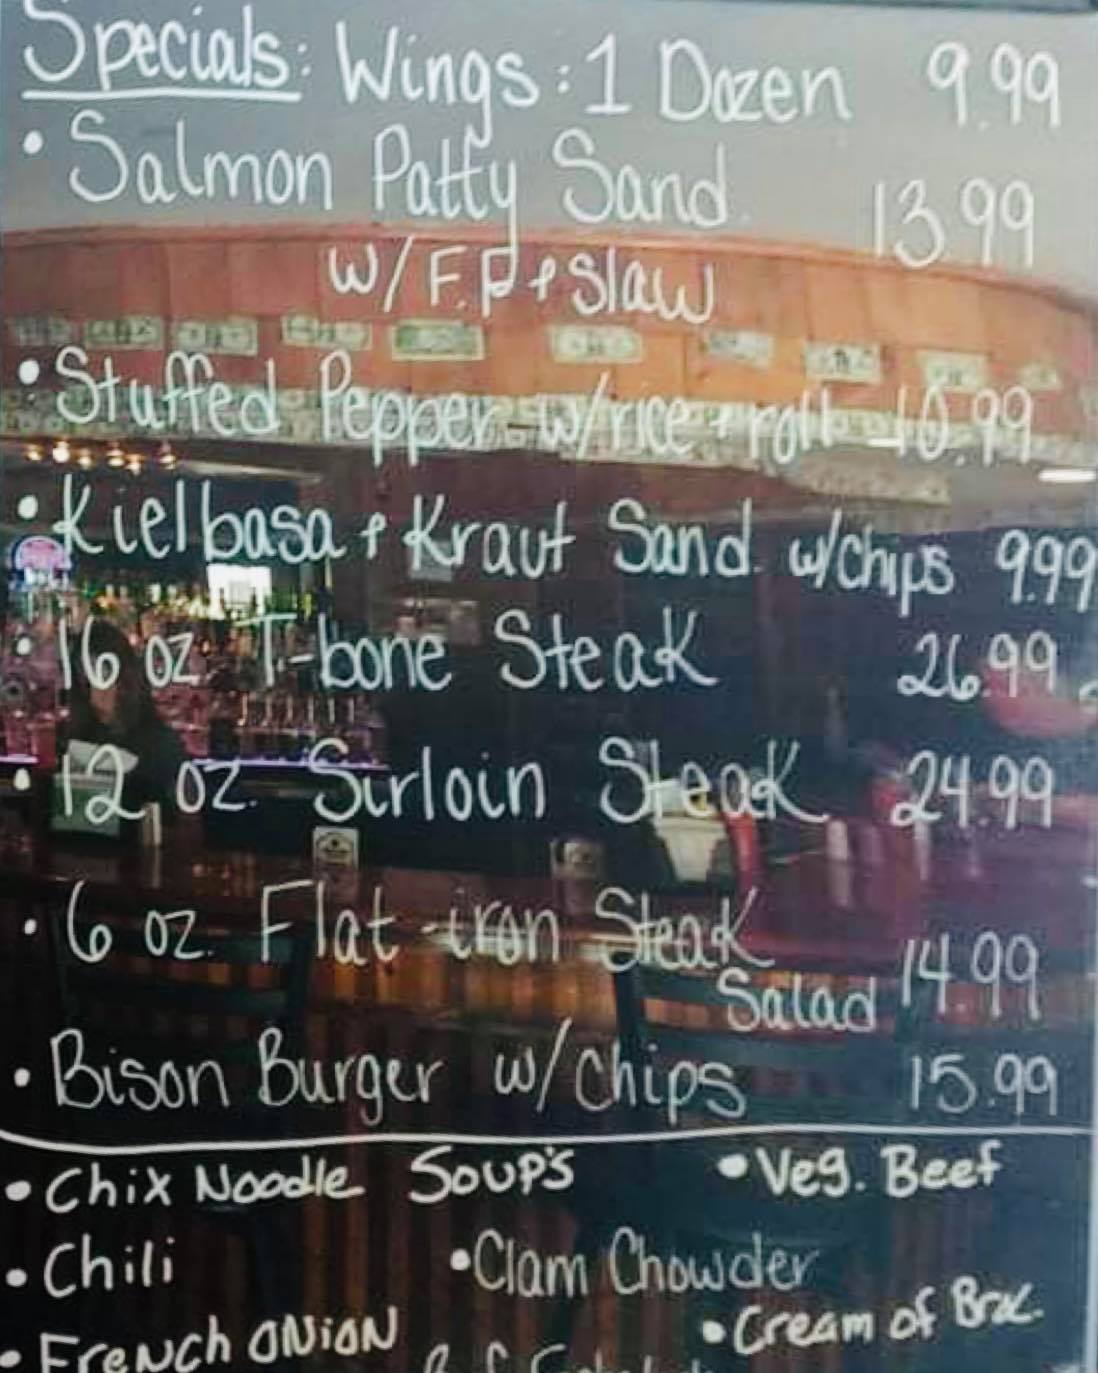 Specials: Wings: 1 Dozen 9.99
• Salmon Patty Sand. 13.99
w/ F.F + Slaw
• Stuffed Pepper w/rice + roll 10.99
• Kielbasa + Kraut Sand. w/chips 9.99
• 16 oz. T-bone Steak 26.99
• 12 oz. Sirloin Steak 24.99
• 6 oz. Flat-iron Steak
Salad 14.99
• Bison Burger w/ Chips 15.99
Soup's
• Chix Noodle • Veg. Beef
• Chili • Clam Chowder
• French ONiON • Cream of Broc.